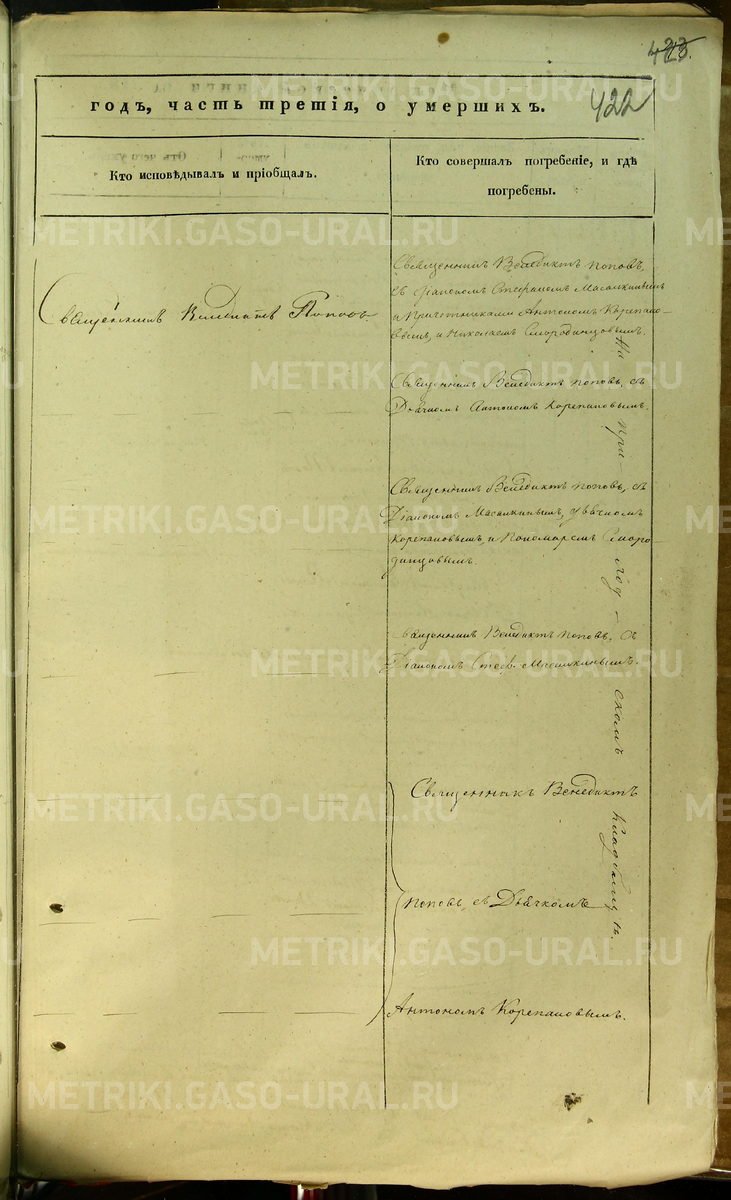 423.
422
годъ, часть третія, о умершихъ.
Кто исповѣдывалъ и пріобщалъ.
Кто совершалъ погребеніе, и гдѣ
погребены.
Священникъ Венедиктъ Поповъ.
Священникъ Венедиктъ Поповъ,
съ Діакономъ Стефаномъ Масалкинымъ
и Причетниками Антономъ Корепано-
вымъ, и Николаемъ Смородинцовымъ.
Священникъ Венедиктъ Поповъ, съ
Дьячкомъ Антономъ Корепановымъ.
Священникъ Венедиктъ Поповъ, съ
Діакономъ Масалкинымъ, Дьячкомъ
Корепановымъ, и Пономаремъ Сморо-
динцовымъ.
Священникъ Венедиктъ Поповъ, съ
Діакономъ Стеф. Масалкинымъ.
Священникъ Венедиктъ
Поповъ, съ Дьячкомъ
Антономъ Корепановымъ.
На при-
ход-
скомъ
кладбищѣ.
METRIKI.GASO-URAL.RU